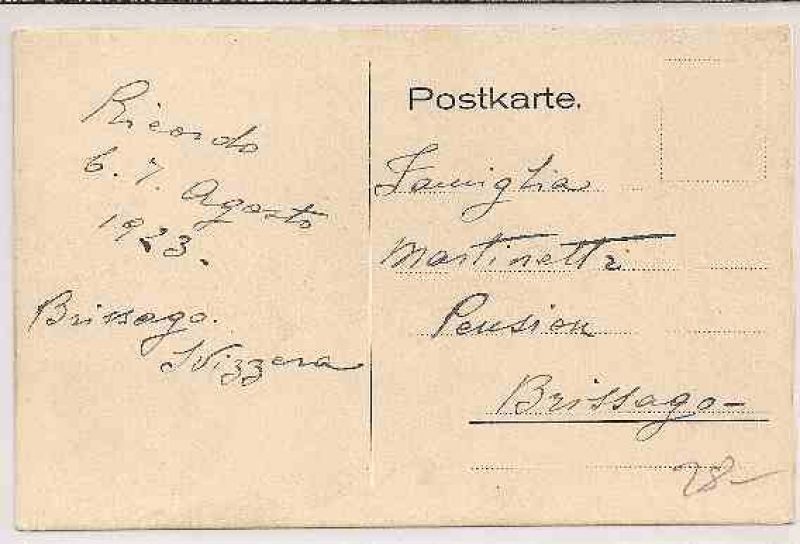 Ricordo
6. 7. Agosto
1923.
Brissago.
Svizzera
Postkarte.
Famiglia
Martinetti
Pension
Brissago-
28-